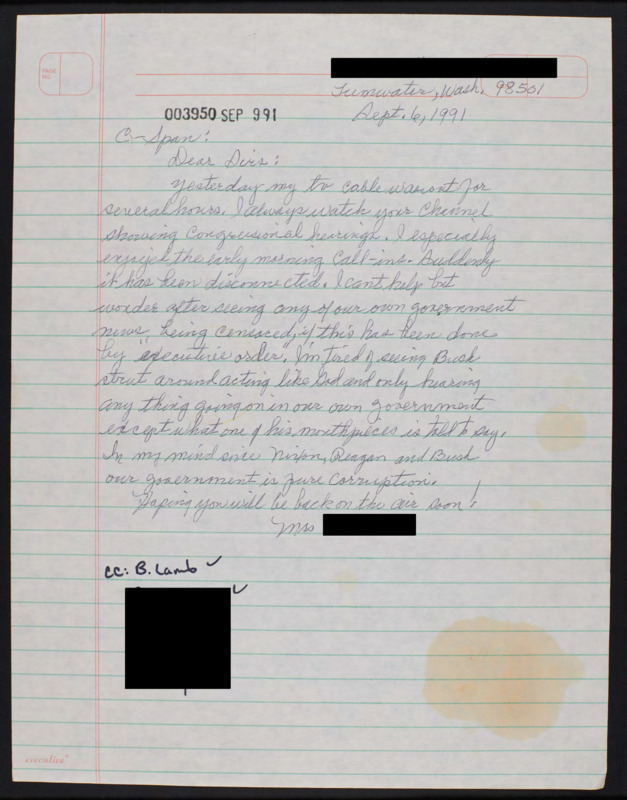 PAGE
NO.
Tumwater, Wash. 98501
003950 SEP 9 91
Sept. 6, 1991
C-Span:
Dear Sirs:
Yesterday my tv cable wasn't for
several hours. I always watch your Channel
showing Congressional hearings. I especially
enjoyed the early morning Call-ins. Suddenly
it has been disconnected. I cant help but
wonder after seeing any of our own government
news being censored, if this has been done
by "executive order". I'm tired of seeing Bush
strut around acting like God and only hearing
any thing going on in our own government
except what one of his mouthpieces is told to say.
In my mind since Nixon, Reagan and Bush
our government is pure corruption.
Hoping you will be back on the air soon!
Mrs
cc: B. Lamb ✓
executive